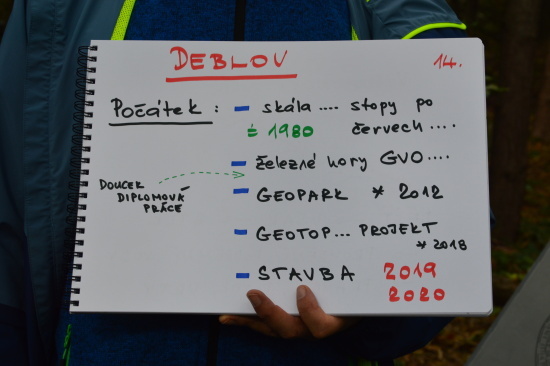 DEBLOV
14.
Počátek : - skála .... stopy po
± 1980 červech ....
- železné hory GVO ....
DOUCEK
DIPLOMOVÁ
PRÁCE
- GEOPARK * 2012
- GEOTOP... PROJEKT
* 2018
- STAVBA 2019
2020